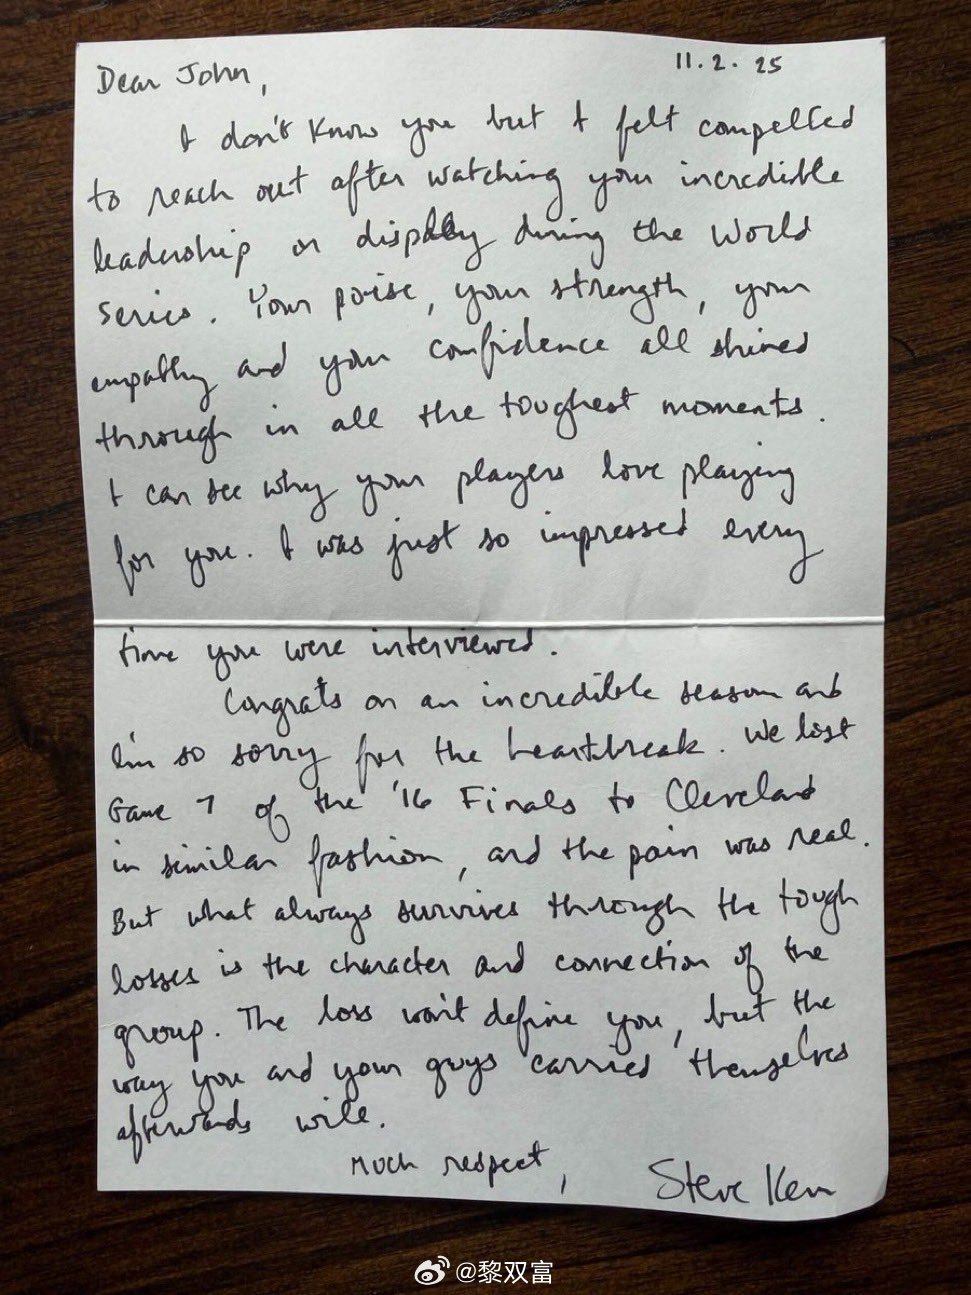 11.2.25
Dear John,
I don't know you but I felt compelled
to reach out after watching your incredible
leadership on display during the World
Series. Your poise, your strength, your
empathy and your confidence all shined
through in all the toughest moments.
I can see why your players love playing
for you. I was just so impressed every
time you were interviewed.
Congrats on an incredible season and
I'm so sorry for the heartbreak. We lost
Game 7 of the '16 Finals to Cleveland
in similar fashion, and the pain was real.
But what always survives through the tough
losses is the character and connection of the
group. The loss won't define you, but the
way you and your guys carried themselves
afterwards will.
Much respect,
Steve Kerr
@黎双富